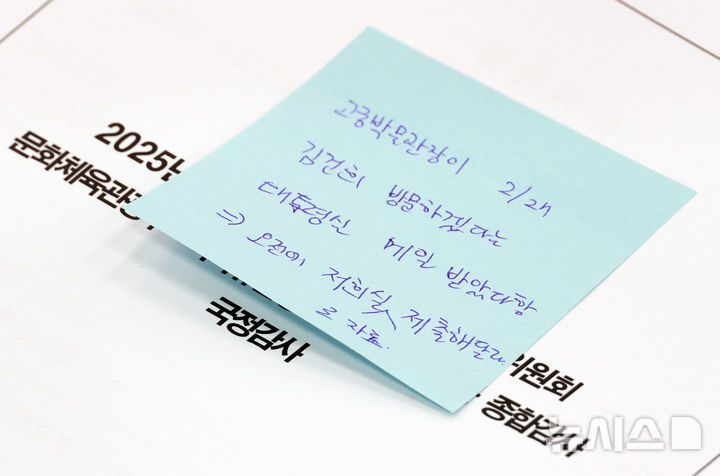 고궁박물관장이 2/24
김건희 방문하겠다는
메일 받았다함
⇒ 오전에 저희실 제출해달라
로 자료.
2025년
문화체육관광
국정감사
위원회
종합감사
뉴시스